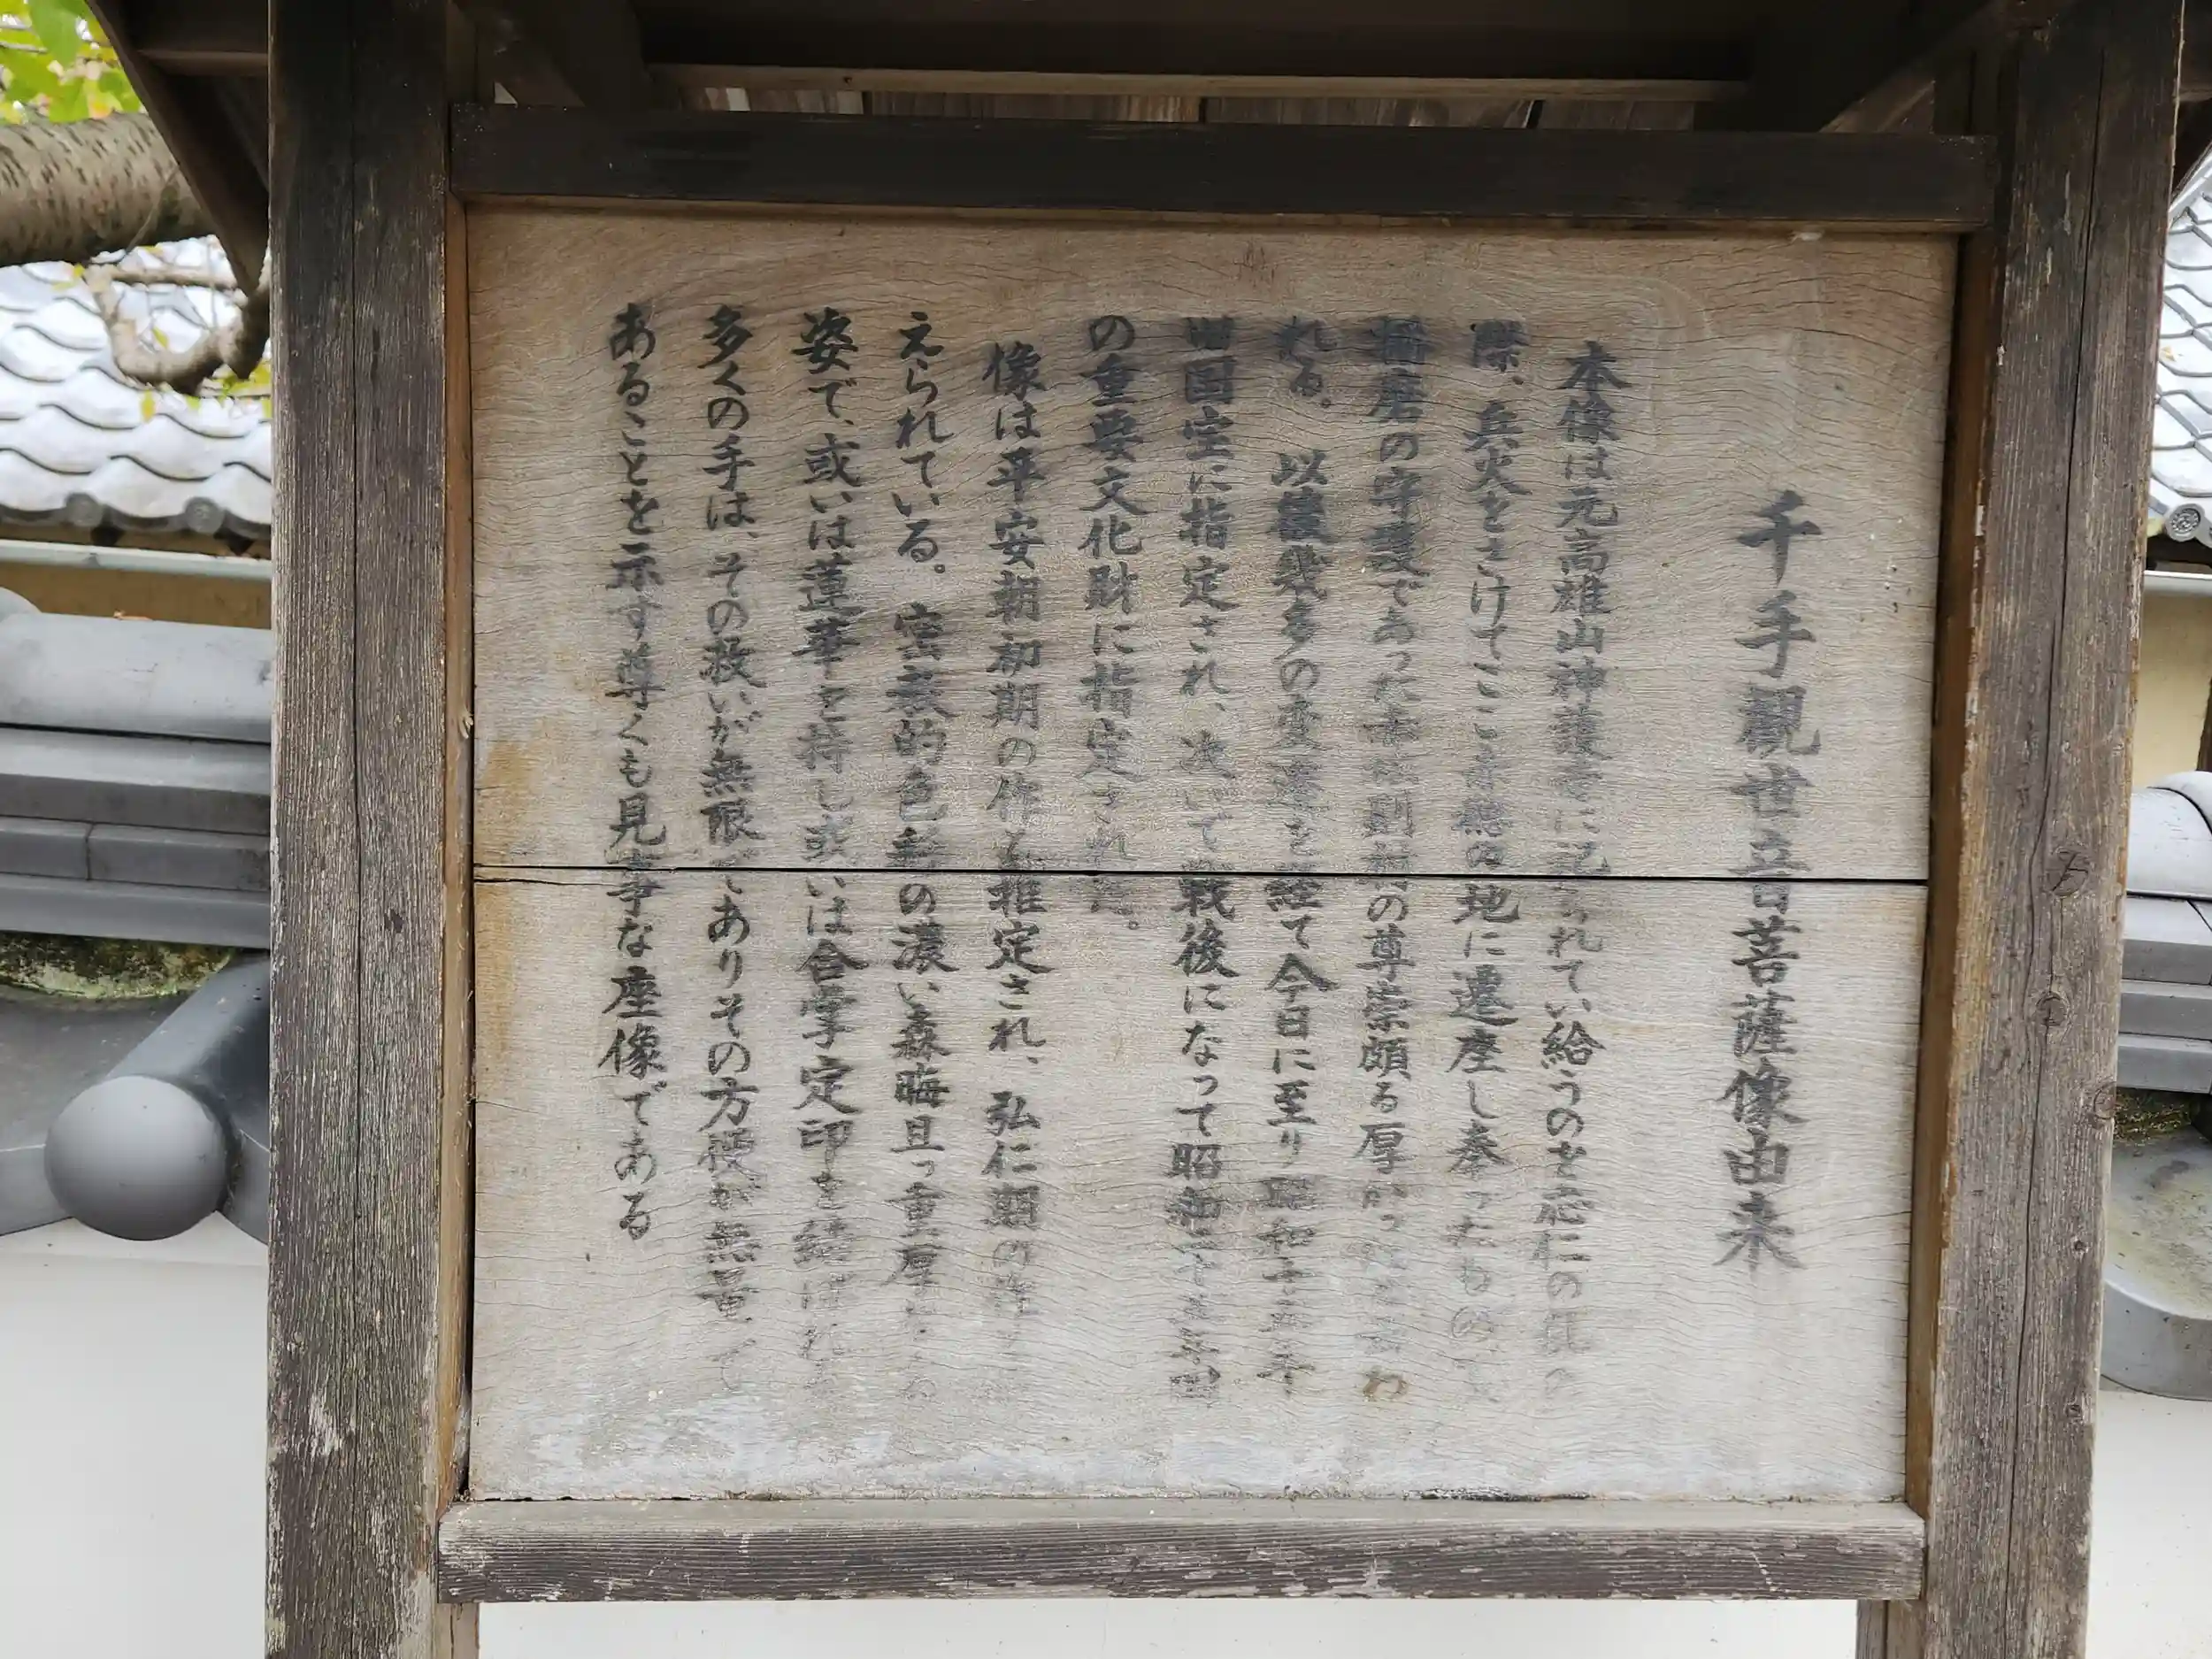 千手観世音菩薩像由来
本像は元高雄山神護寺に祀られてい給うのを応仁の乱の
際、兵火をさけてここ 無の地に遷座し奉ったもの
播磨の守護であった赤松則村の尊崇頗る厚かった わ
れる。以後幾多の変遷を経て今日に至り昭和 年
旧国宝に指定され、次いで戦後になって昭和 国
の重要文化財に指定された。
像は平安朝初期の作と推定され、弘仁期の
えられている。密教的色彩の濃い森晦且つ重厚な
姿で、或いは蓮華を持し或いは合掌定印を結ばれる
多くの手は、その救いが無限でありその方便が無量で
あることを示す尊くも見事な座像である